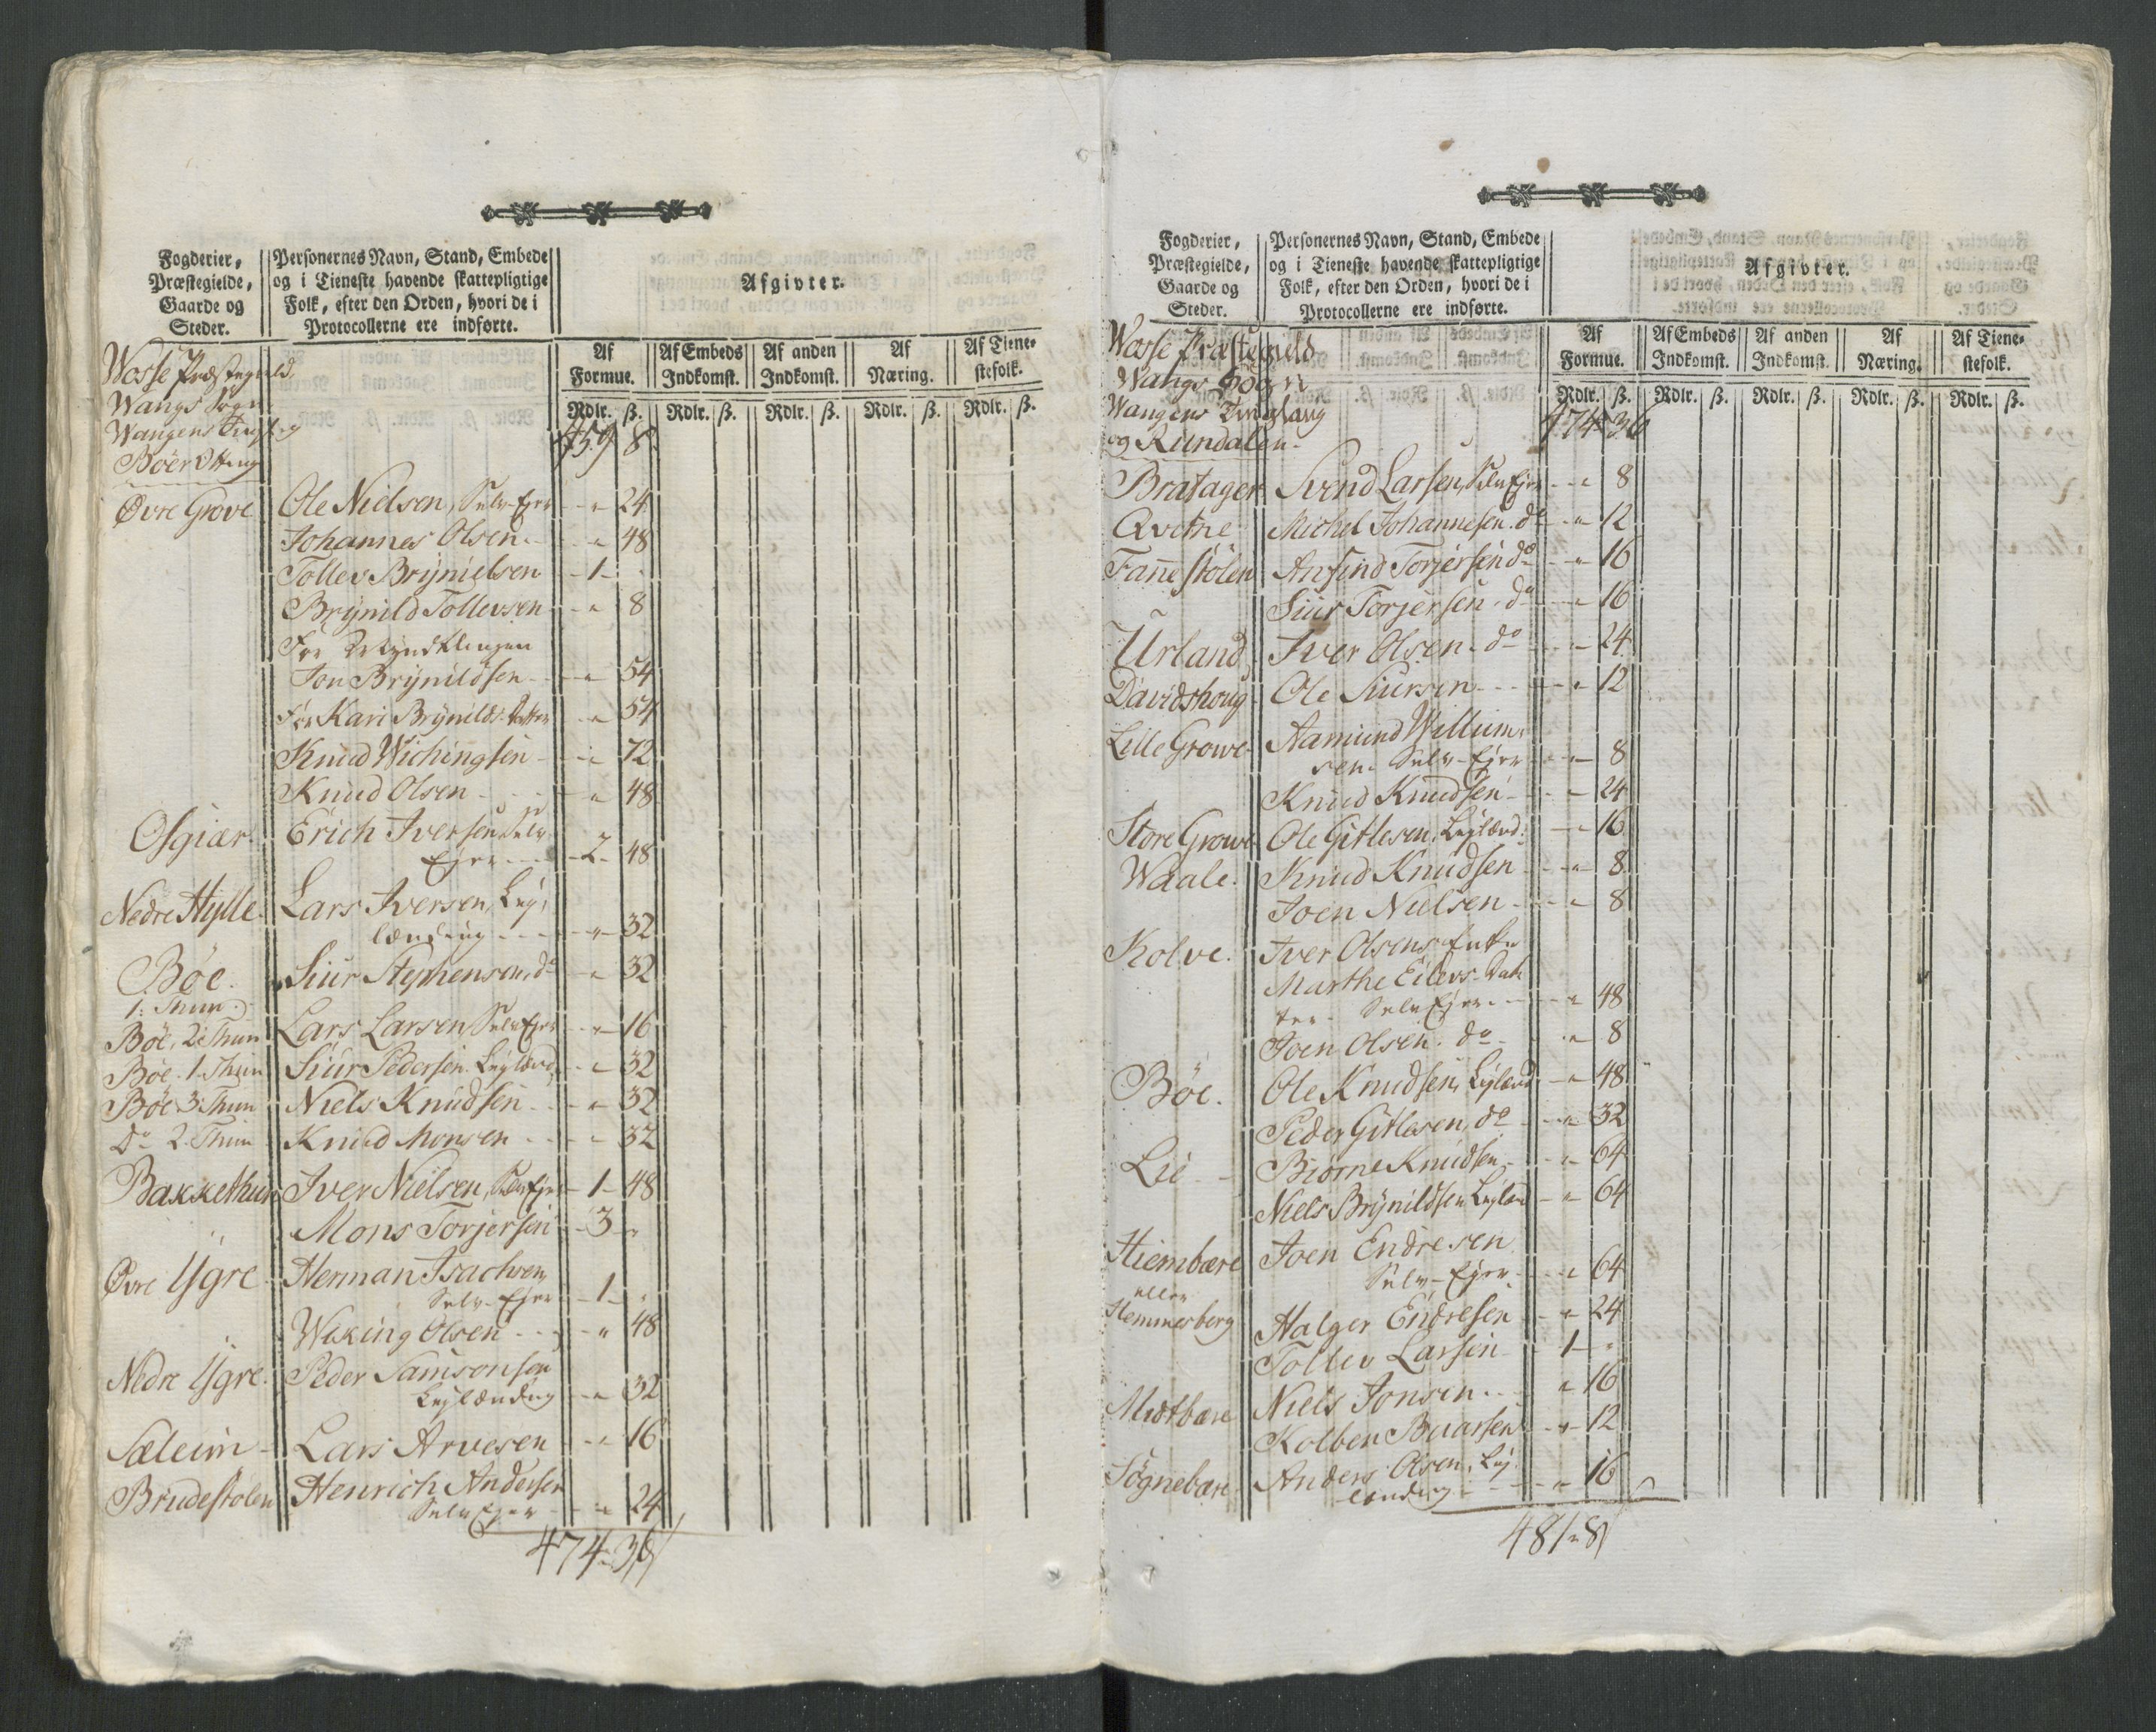 Fogderier,
Præstegielde,
Gaarde og
Steder.
Personernes Navn, Stand, Embede
og i Tieneste havende skattepligtige
Folk, efter den Orden, hvori de i
Protocollerne ere indførte.
Afgivter.
Af Formue. Af Embeds Indkomst. Af anden Indkomst. Af Næring. Af Tiene- stefolk.
Rdlr. ß. Rdlr. ß. Rdlr. ß. Rdlr. ß. Rdlr. ß.
Wosse Præstegield
Wangs Sogn
Wangens Tinglaug
Böer Otting
459 8
Øvre Grove Ole Nielsen, Selv-Ejer - " 24
Johannes Olsen - " 48
Tollev Brynielsen - 1 -
Brynild Tollevsen - " 8
For Myndklingen
Jon Brynildsen - " 54
For Kari Brynilds Datter " 54
Knud Wichingsen - " 72
Knud Olsen - " 48
Osgiær. Erich Iversen, Selv
Ejer - 2 - 48
Nedre Hylle. Lars Iversen, Ley-
lænding - " 32
Böe. Siur Stephensen, do " 32
1. Thun
Böe, 2. Thun Lars Larsen, Selv Ejer - " 16
Böe. 1. Thun Siur Pedersen. Leylænd. - " 32
Böe 3. Thun Niels Knudsen - " 32
Do 2. Thun Knud Monsen - " 32
Bakkethun Iver Nielsen, Selv Ejer - 1 - 48
Mons Torjersen - 3 - "
Øvre Ygre. Herman Isachsen,
Selv-Ejer - 1 - "
Wiking Olsen - " 48
Nedre Ygre. Peder Samsonsen
Leylænding - " 32
Sæleim - Lars Arvesen - " 16
Brudestolen Henrich Andersen
Selv Ejer - " 24
474 - 36
Fogderier,
Præstegielde,
Gaarde og
Steder.
Personernes Navn, Stand, Embede
og i Tieneste havende skattepligtige
Folk, efter den Orden, hvori de i
Protocollerne ere indførte.
Afgivter.
Af Formue. Af Embeds Indkomst. Af anden Indkomst. Af Næring. Af Tiene- stefolk.
Rdlr. ß. Rdlr. ß. Rdlr. ß. Rdlr. ß. Rdlr. ß.
Wosse Præstegield
Wangs Sogn
Wangens Tinglaug
og Rundalen.
474 36
Bratager Svend Larsen, Selv Ejer - " 8
Qvitne Michel Johannesen. do - " 12
Fannestölen Anfind Torjersen do - " 16
Siur Torjersen. do - " 16
Urland Iver Olsen. do - " 24
Davidshoug Ole Siursen - " 12
Lille Growe Aamund Willum-
sen. Selv-Ejer - " 8
Knud Knudsen - " 24
Store Growe Ole Gitlesen, Leylænd: - " 16
Waale. Knud Knudsen - " 8
Joen Nielsen - " 8
Kolve. Iver Olsens Enke
Marthe Eilevs Dat-
ter - Selv Ejer - " 48
Joen Olsen. do - " 8
Böe. Ole Knudsen, Leylænd - " 48
Peder Gitlesen, do - " 32
Lie - Biörne Knudsen - " 64
Niels Brynildsen Leylæn - " 64
Hiembære Joen Endresen
Selv-Ejer - " 64
eller
Hemmerberg Halger Endresen - " 24
Tollev Larsen - 1 - "
Midtbære Niels Jonsen - " 16
Kolben Buarsen - " 12
Sögnebære. Anders Olsen. Ley-
lænding - " 16
481 - 8